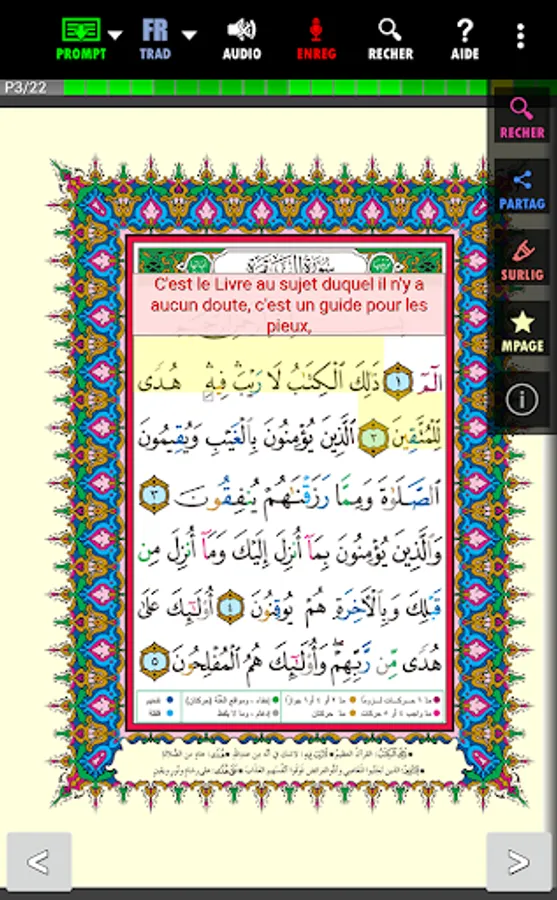 PROMPT FR TRAD AUDIO ENREG RECHER AIDE
P3/22
RECHER
PARTAG
SURLIG
MPAGE
سُورَةُ البَقَرَةِ
C'est le Livre au sujet duquel il n'y a
aucun doute, c'est un guide pour les
pieux,
الٓمٓ ١ ذَٰلِكَ ٱلْكِتَٰبُ لَا رَيْبَ ۛ فِيهِ ۛ هُدًى
لِّلْمُتَّقِينَ ٢ ٱلَّذِينَ يُؤْمِنُونَ بِٱلْغَيْبِ وَيُقِيمُونَ
ٱلصَّلَوٰةَ وَمِمَّا رَزَقْنَٰهُمْ يُنفِقُونَ ٣
وَٱلَّذِينَ يُؤْمِنُونَ بِمَآ أُنزِلَ إِلَيْكَ وَمَآ أُنزِلَ مِن
قَبْلِكَ وَبِٱلْءَاخِرَةِ هُمْ يُوقِنُونَ ٤ أُو۟لَٰٓئِكَ عَلَىٰ
هُدًى مِّن رَّبِّهِمْ ۖ وَأُو۟لَٰٓئِكَ هُمُ ٱلْمُفْلِحُونَ ٥
<
>